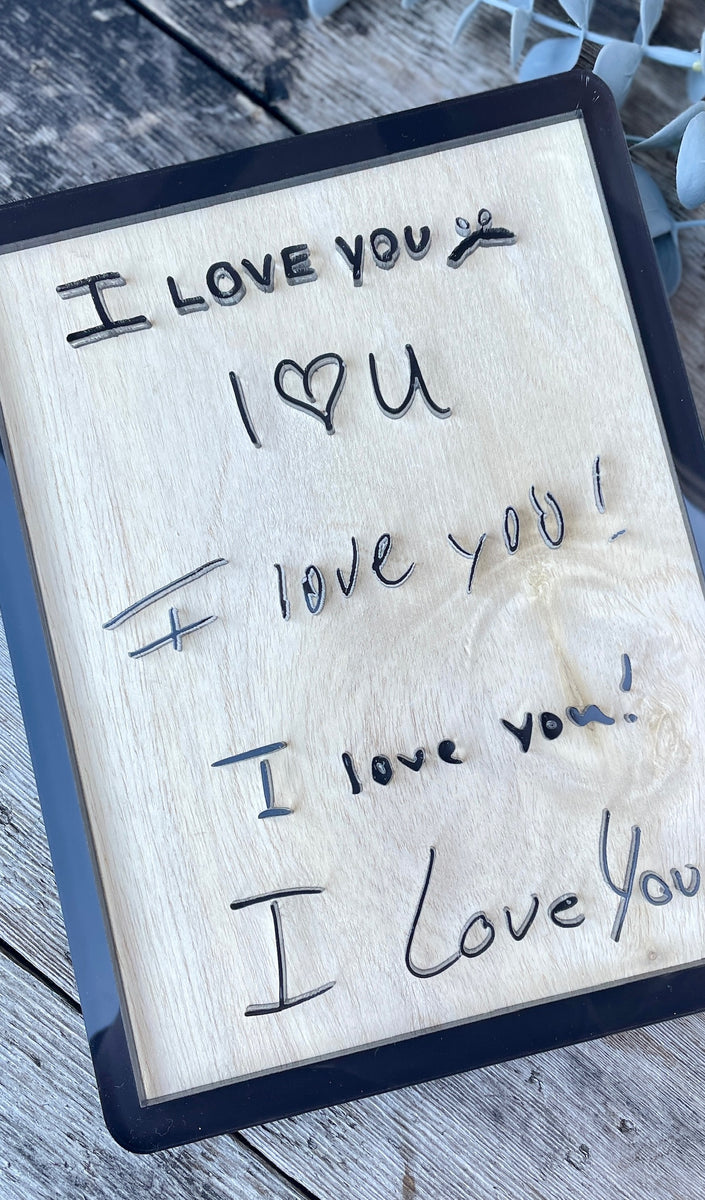 I LOVE YOU
I ♡ U
I love you!
I love you!
I Love You